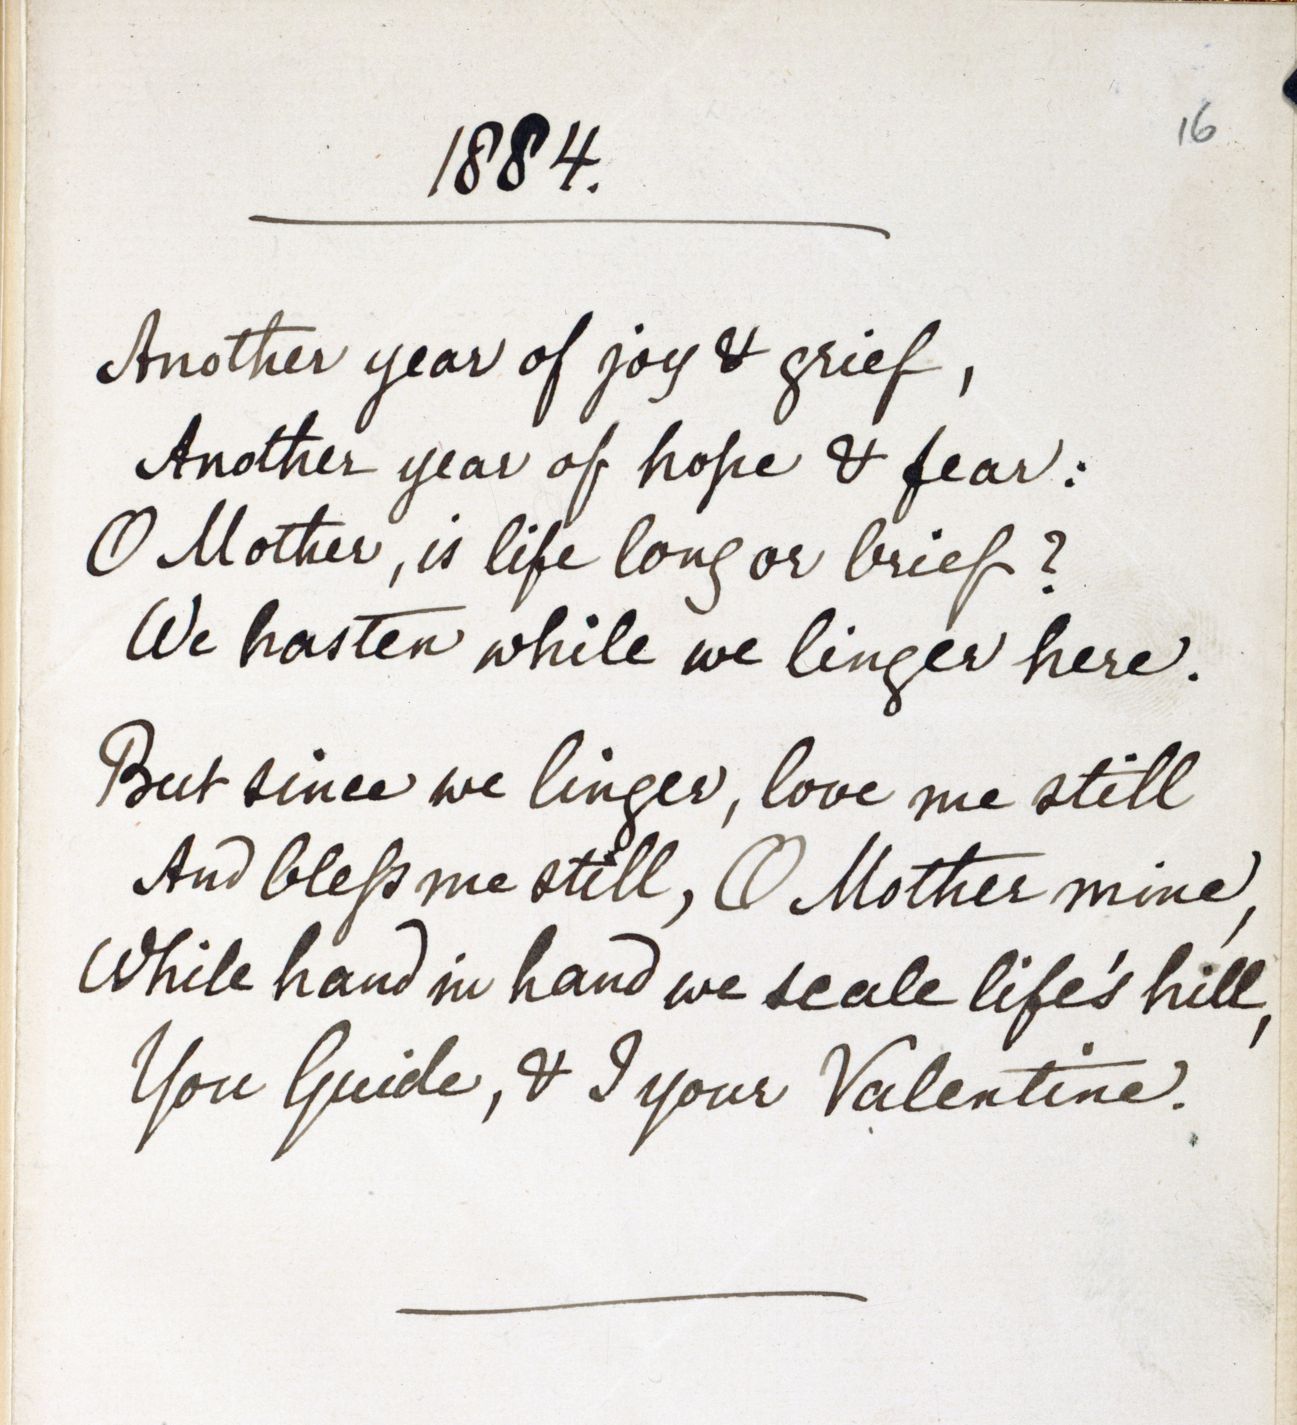 16
1884.
Another year of joy & grief,
Another year of hope & fear:
O Mother, is life long or brief?
We hasten while we linger here.
But since we linger, love me still
And bleſs me still, O Mother mine,
While hand in hand we scale life's hill,
You Guide, & I your Valentine.